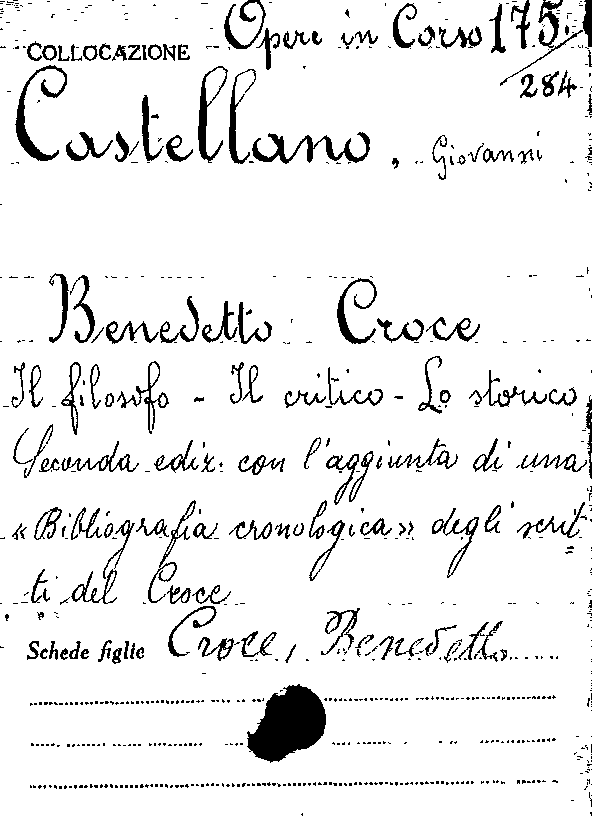 COLLOCAZIONE Opere in Corso 175.
284
Castellano, Giovanni
Benedetto Croce
Il filosofo - Il critico - Lo storico
Seconda ediz. con l'aggiunta di una
«Bibliografia cronologica» degli scrit=
ti del Croce
Schede figlie Croce, Benedetto